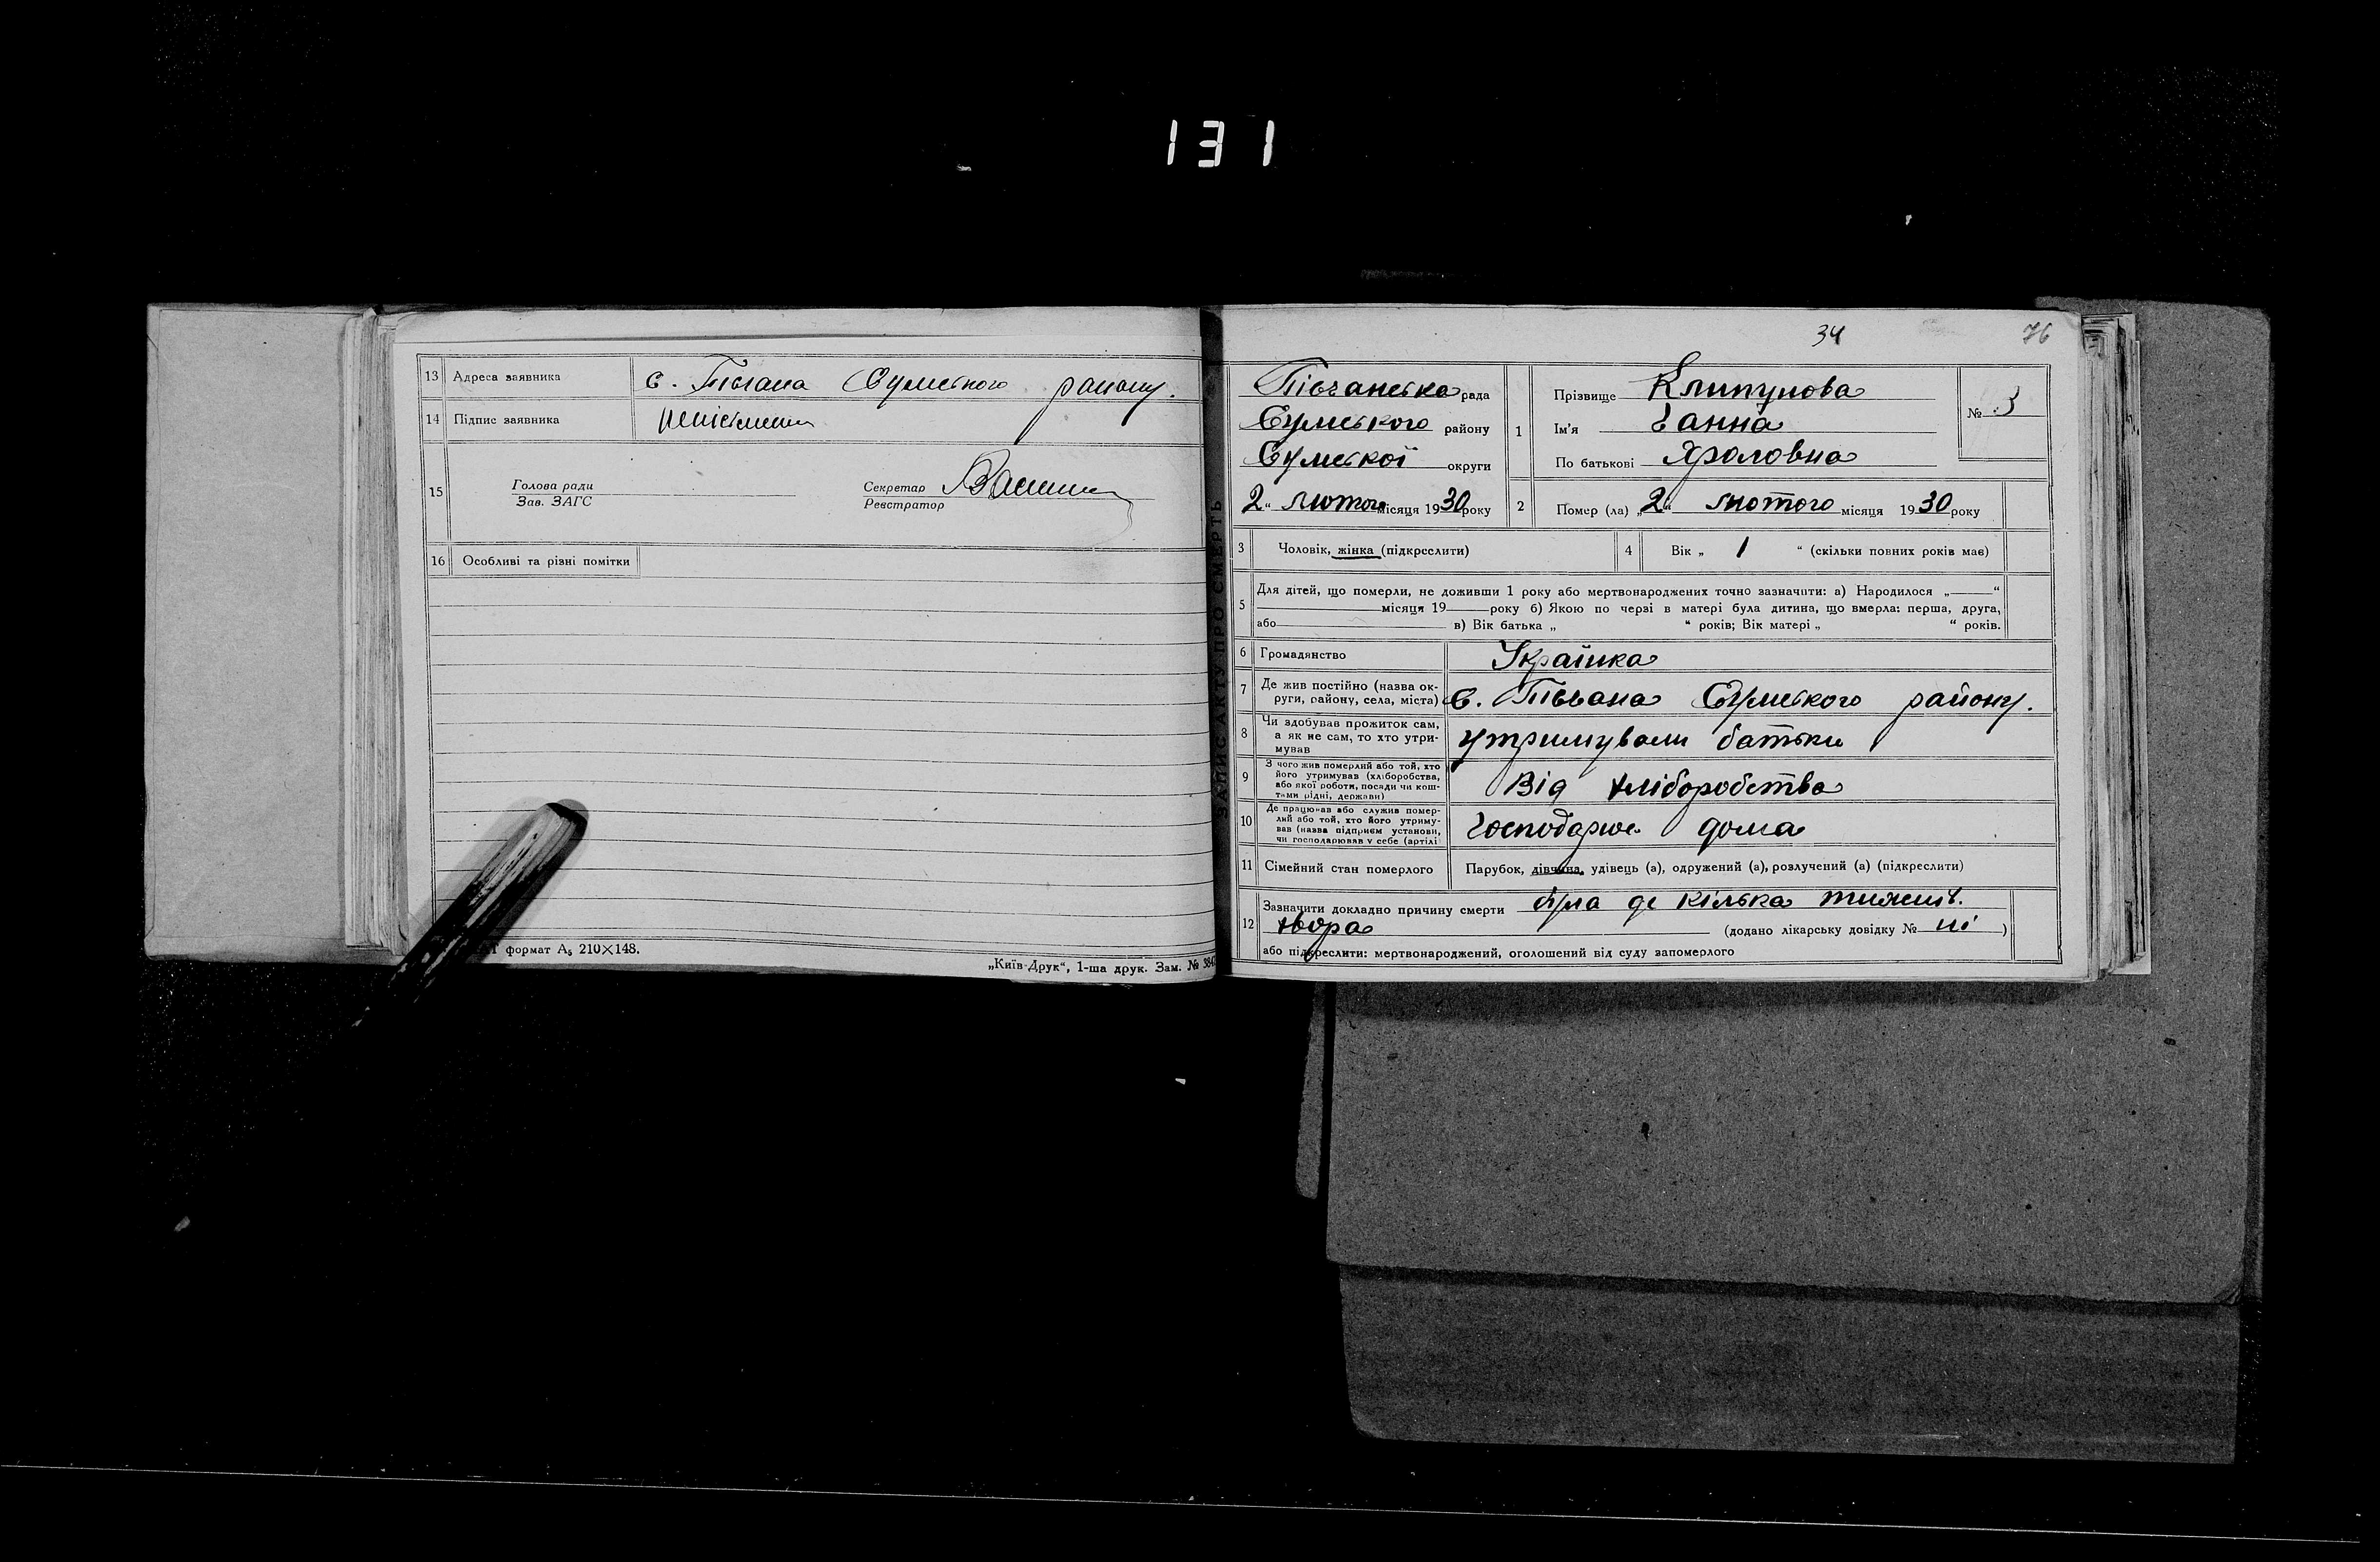 131
13 Адреса заявника с. Пісчана Сумського району.
14 Підпис заявника неписьмен
15 Голова ради
Зав. ЗАГС
Секретар
Реєстратор
16 Особливі та різні помітки
формат А₅ 210×148.
„Київ-Друк“, 1-ша друк. Зам. № 384
ЗАПИС АКТУ ПРО СМЕРТЬ
34
76
Пісчанська рада
Сумського району
Сумської округи
2 “ лютого місяця 1930 року
1 Прізвище Клипунова
Ім'я Ганна
По батькові
№ 3
2 Помер (ла) „2“ лютого місяця 1930 року
3 Чоловік, жінка (підкреслити)
4 Вік „ 1 “ (скільки повних років має)
5 Для дітей, що померли, не доживши 1 року або мертвонароджених точно зазначити: а) Народилося „ “
місяця 19 року б) Якою по черзі в матері була дитина, що вмерла: перша, друга,
або в) Вік батька „ “ років; Вік матері „ “ років.
6 Громадянство Українка
7 Де жив постійно (назва ок-
руги, району, села, міста) с. Пісчана Сумського району.
8 Чи здобував прожиток сам,
а як не сам, то хто утри-
мував утримували батьки
9 З чого жив померлий або той, хто
його утримував (хліборобства,
або якої роботи, посади чи кош-
тами рідні, держави) Від хліборобства
10 Де працював або служив помер-
лий або той, хто його утриму-
вав (назва підприєм установи,
чи господарював у себе (артілі Господарює дома
11 Сімейний стан померлого Парубок, дівчина, удівець (а), одружений (а), розлучений (а) (підкреслити)
12 Зазначити докладно причину смерти була де кілька тижнів.
хвора (додано лікарську довідку № ні )
або підкреслити: мертвонароджений, оголошений від суду запомерлого